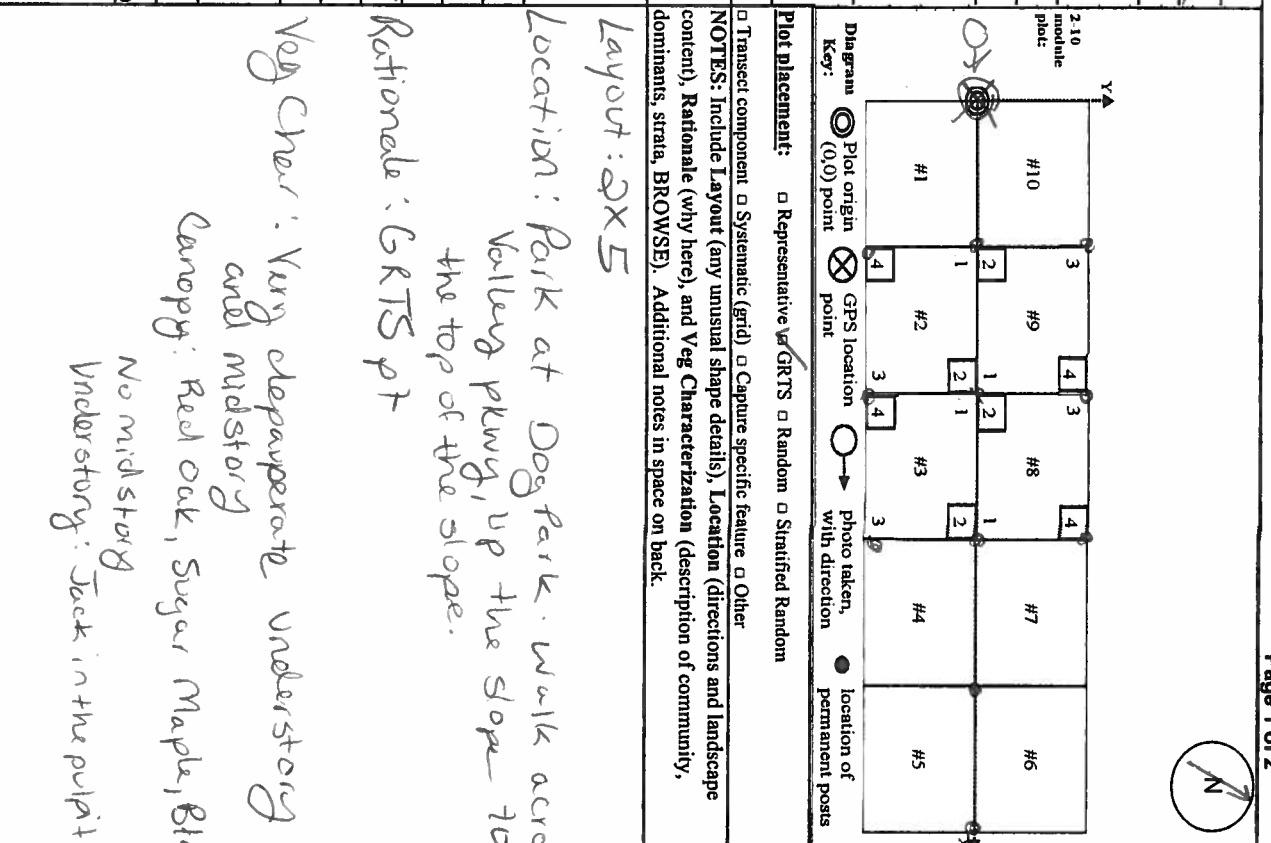 Page 1 of 2
N
2-10
module
plot:
Y
#10 #9 #8 #7 #6
3 4 3 4
2 1 2 1
1 2 1 2
4 3 4 3
#1 #2 #3 #4 #5
Diagram
Key:
Plot origin
(0,0) point
GPS location
point
photo taken,
with direction
location of
permanent posts
Plot placement: □ Representative □ GRTS □ Random □ Stratified Random
□ Transect component □ Systematic (grid) □ Capture specific feature □ Other
NOTES: Include Layout (any unusual shape details), Location (directions and landscape
content), Rationale (why here), and Veg Characterization (description of community,
dominants, strata, BROWSE). Additional notes in space on back.
Layout: 2x5
Location: Park at Dog Park. walk
Valley pkwy, up the slope to
the top of the slope.
Rationale: GRTS pt
Veg Char: Very depauperate understory
and midstory
Canopy: Red oak, Sugar Maple,
No midstory
Understory: Jack in the pulpit